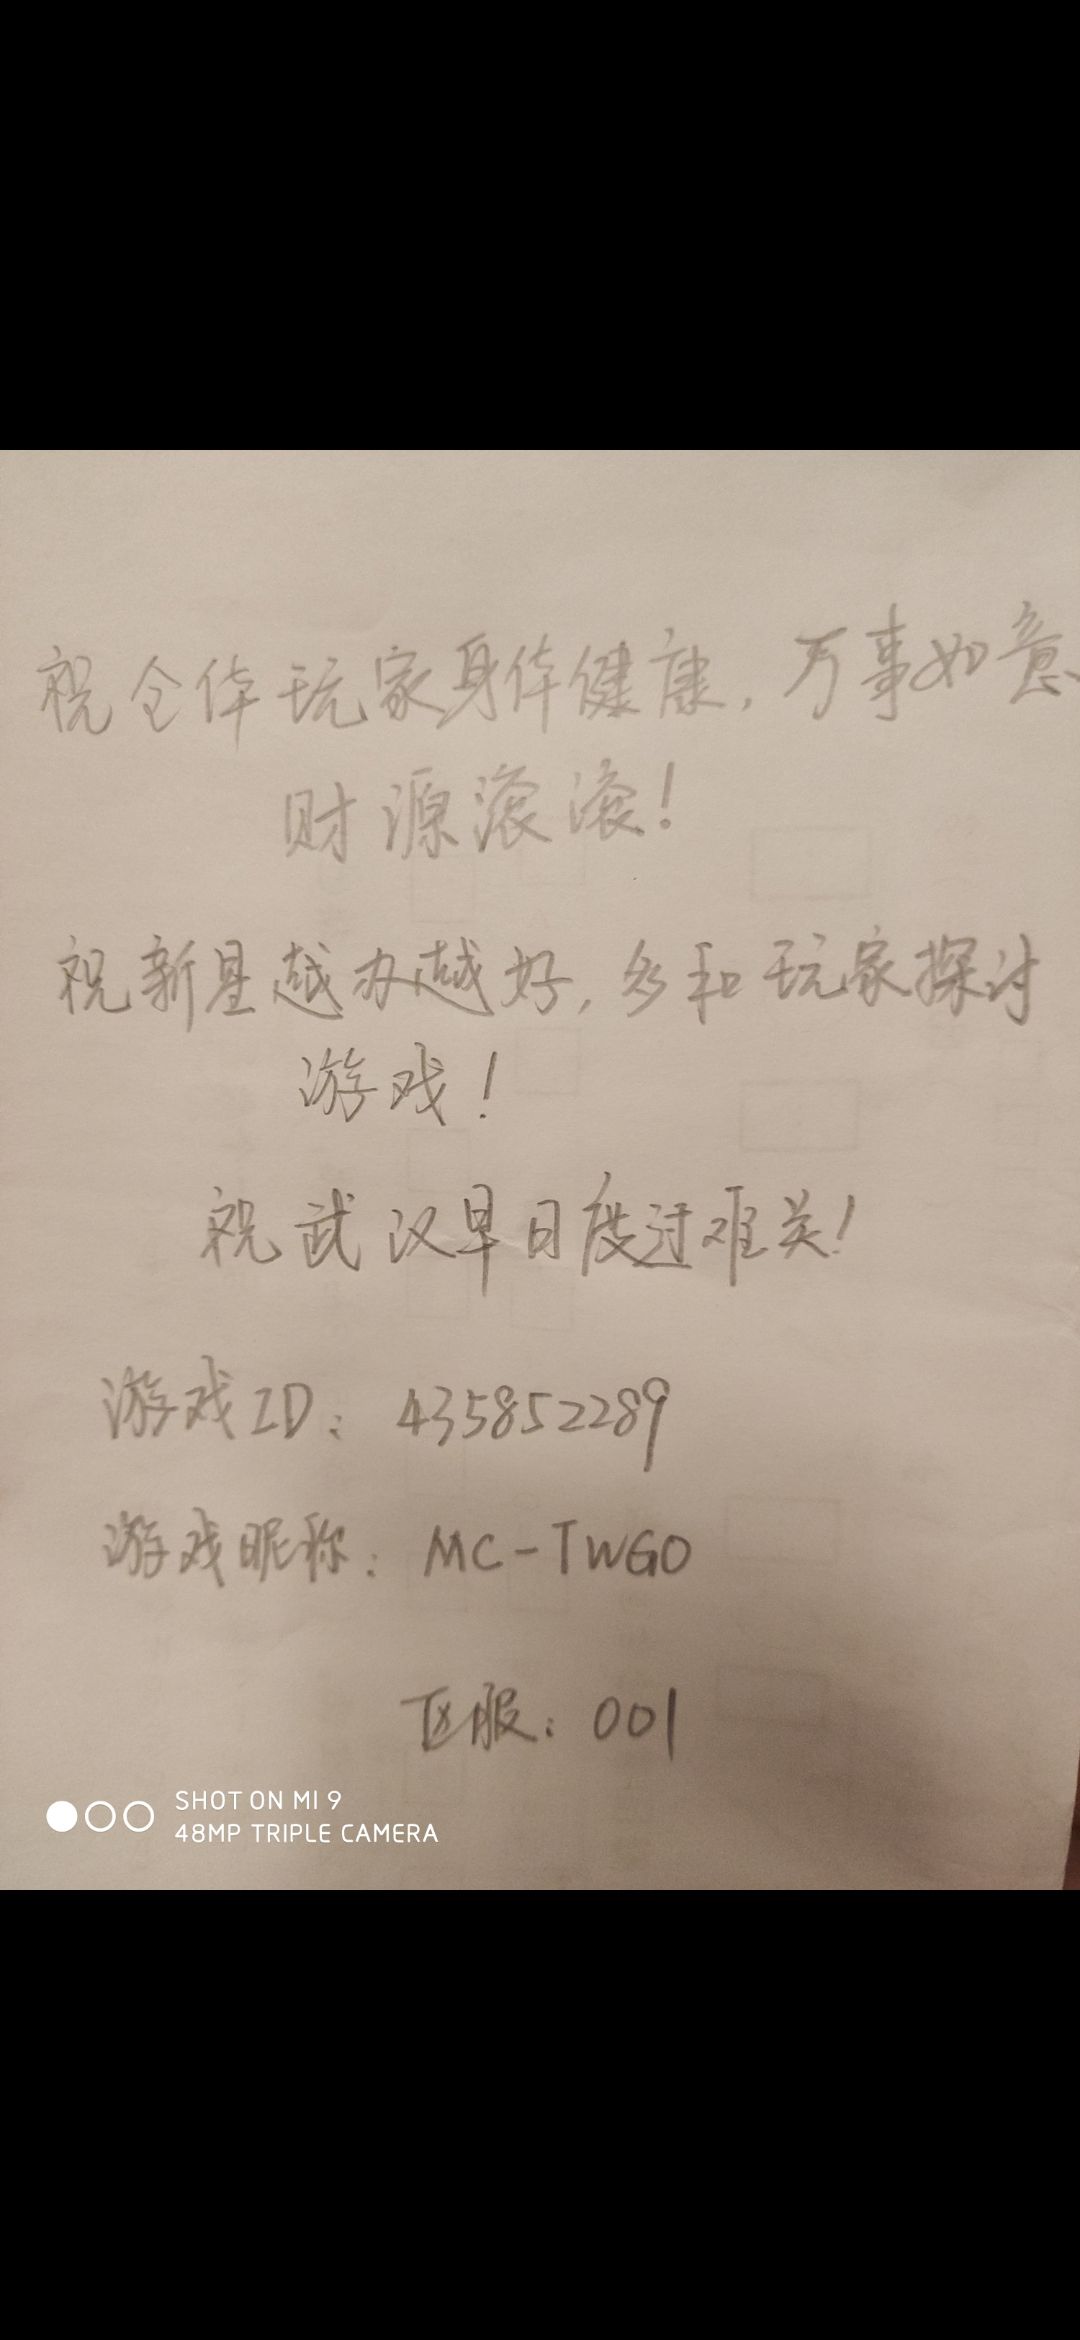 祝全体玩家身体健康，万事如意
财源滚滚！
祝新星越办越好，多和玩家探讨
游戏！
祝武汉早日度过难关！
游戏ID：435852289
游戏昵称：MC-TWGO
区服：001
SHOT ON MI 9
48MP TRIPLE CAMERA